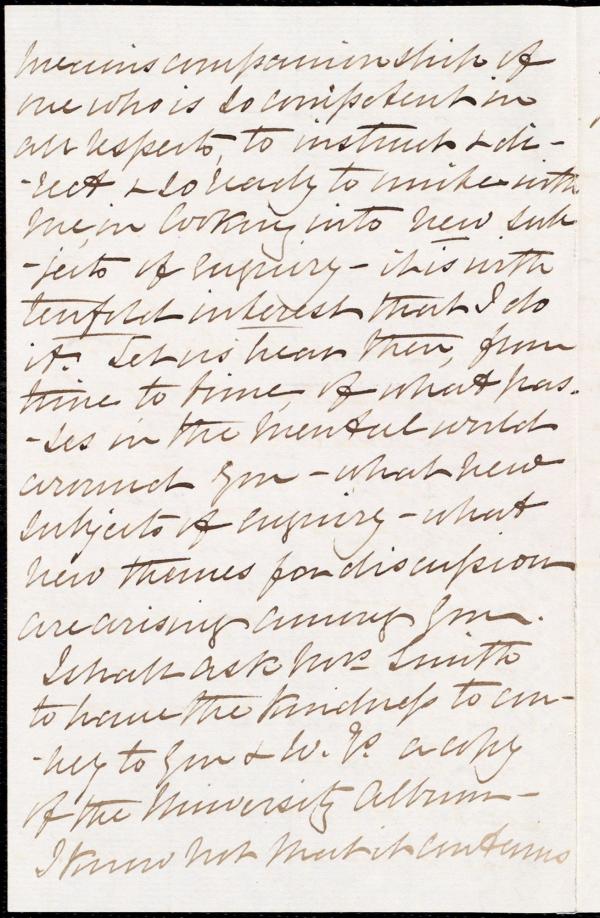 means companionship of
one who is so competent in
all respects, to instruct & di-
-rect & so ready to unite with
me, in looking into new sub
-jects of enquiry - it is with
tenfold interest that I do
it. Let us hear then, from
time to time, of what pas-
-ses in the mental world
around you - what new
subjects of enquiry - what
new themes for discussion
are arising among you.
I shall ask Mrs. Smith
to have the kindness to con-
-vey to you & W. P. a copy
of the University Album -
I know not that it contains